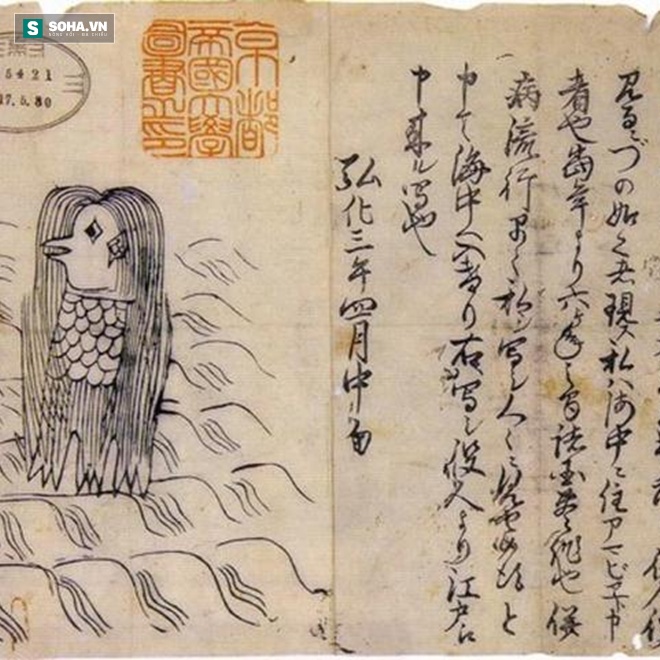 SOHA.VN
5421
京都
帝國大學
圖書之印
見るニづの如く者現ス私ハ海中ニ住アマビヱト申
者也当年より六ケ年之間諸国豊作也併
病流行早々私シ写シ人々ニ見セ候得と
申て海中へ入けり右写シ役人より江戸え
申来ル写也
弘化三年四月中旬